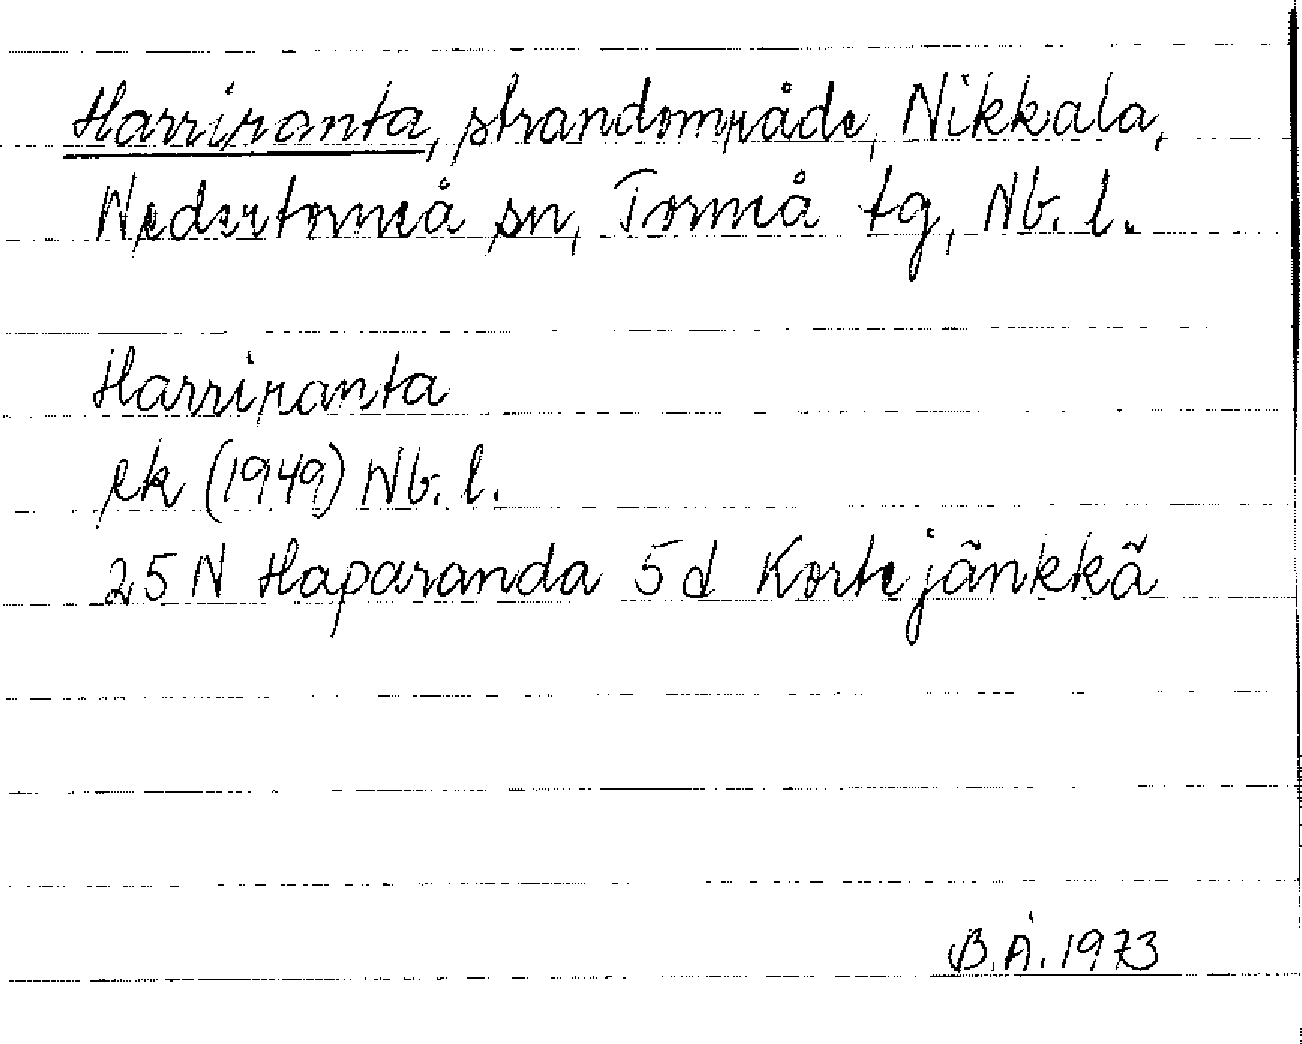 Harriranta, strandområde, Nikkala,
Nedertorneå sn, Torneå tg, Nb. l.
Harriranta
ek (1949) Nb. l.
25 N Haparanda 5d Kortejänkkä
B.Å. 1973